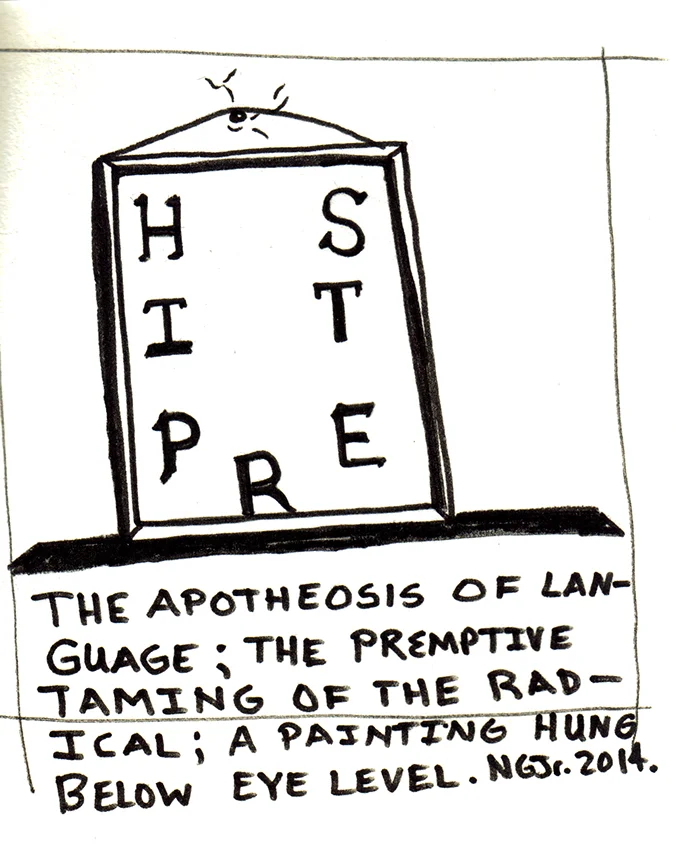 H S
I T
P E
R
THE APOTHEOSIS OF LAN-
GUAGE; THE PREMPTIVE
TAMING OF THE RAD-
ICAL; A PAINTING HUNG
BELOW EYE LEVEL. NGJr. 2014.